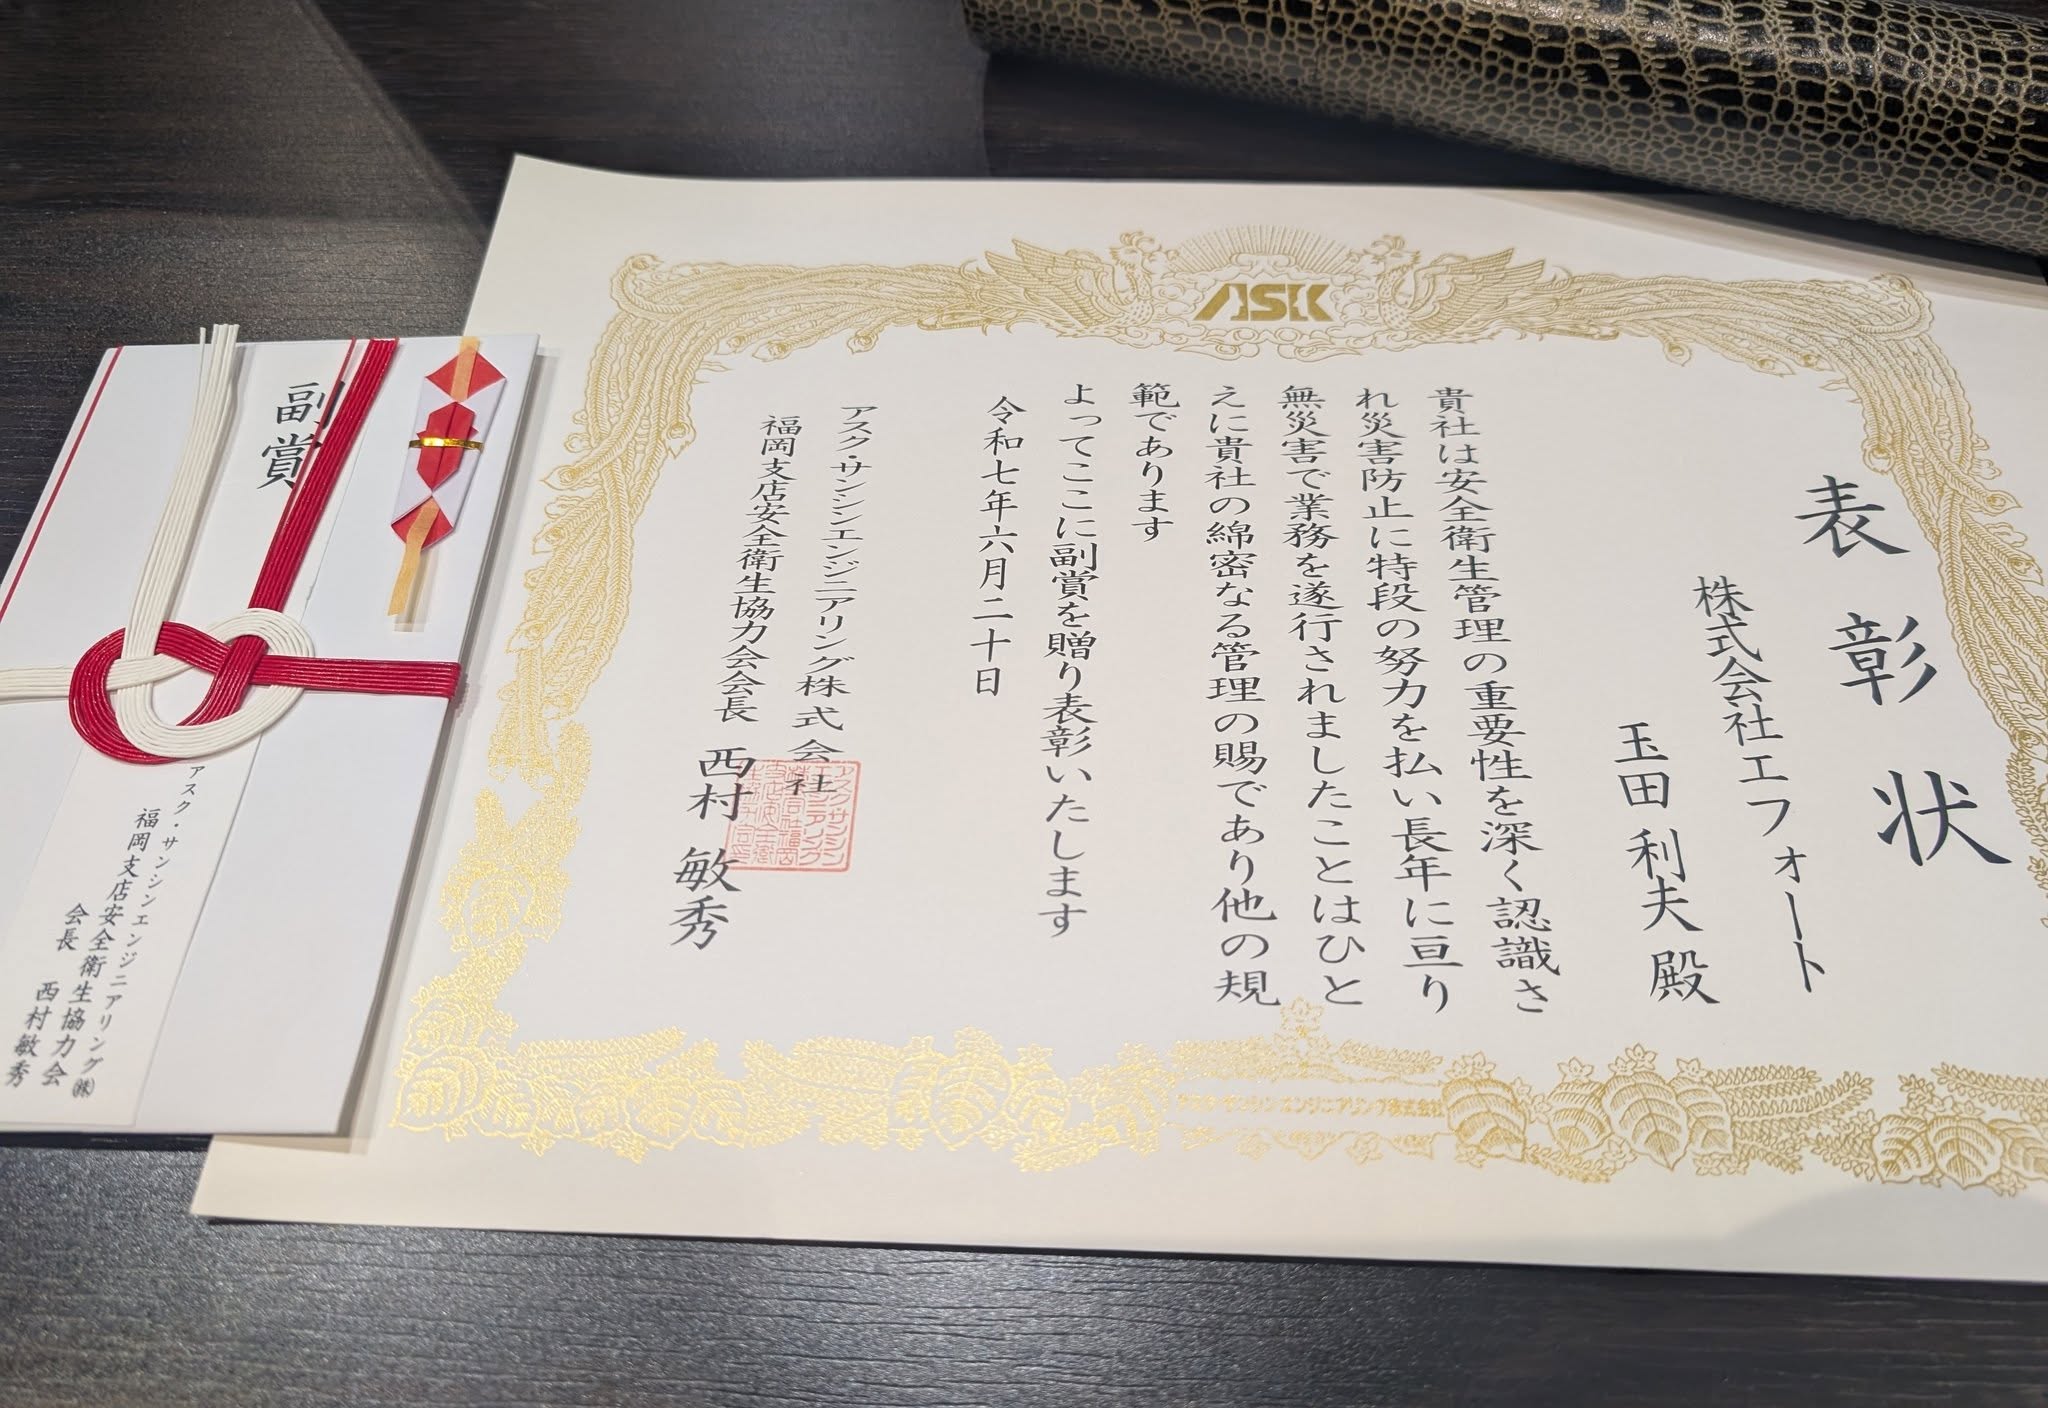 ASK
表彰状
株式会社エフォート
玉田利夫殿
貴社は安全衛生管理の重要性を深く認識さ
れ災害防止に特段の努力を払い長年に亘り
無災害で業務を遂行されましたことはひと
えに貴社の綿密なる管理の賜であり他の規
範であります
よってここに副賞を贈り表彰いたします
令和七年六月二十日
アスク・サンシンエンジニアリング株式会社
福岡支店安全衛生協力会会長 西村 敏秀
アスク・サンシンエンジニアリング株式会社
副賞
アスク・サンシンエンジニアリング㈱
福岡支店安全衛生協力会
会長 西村敏秀